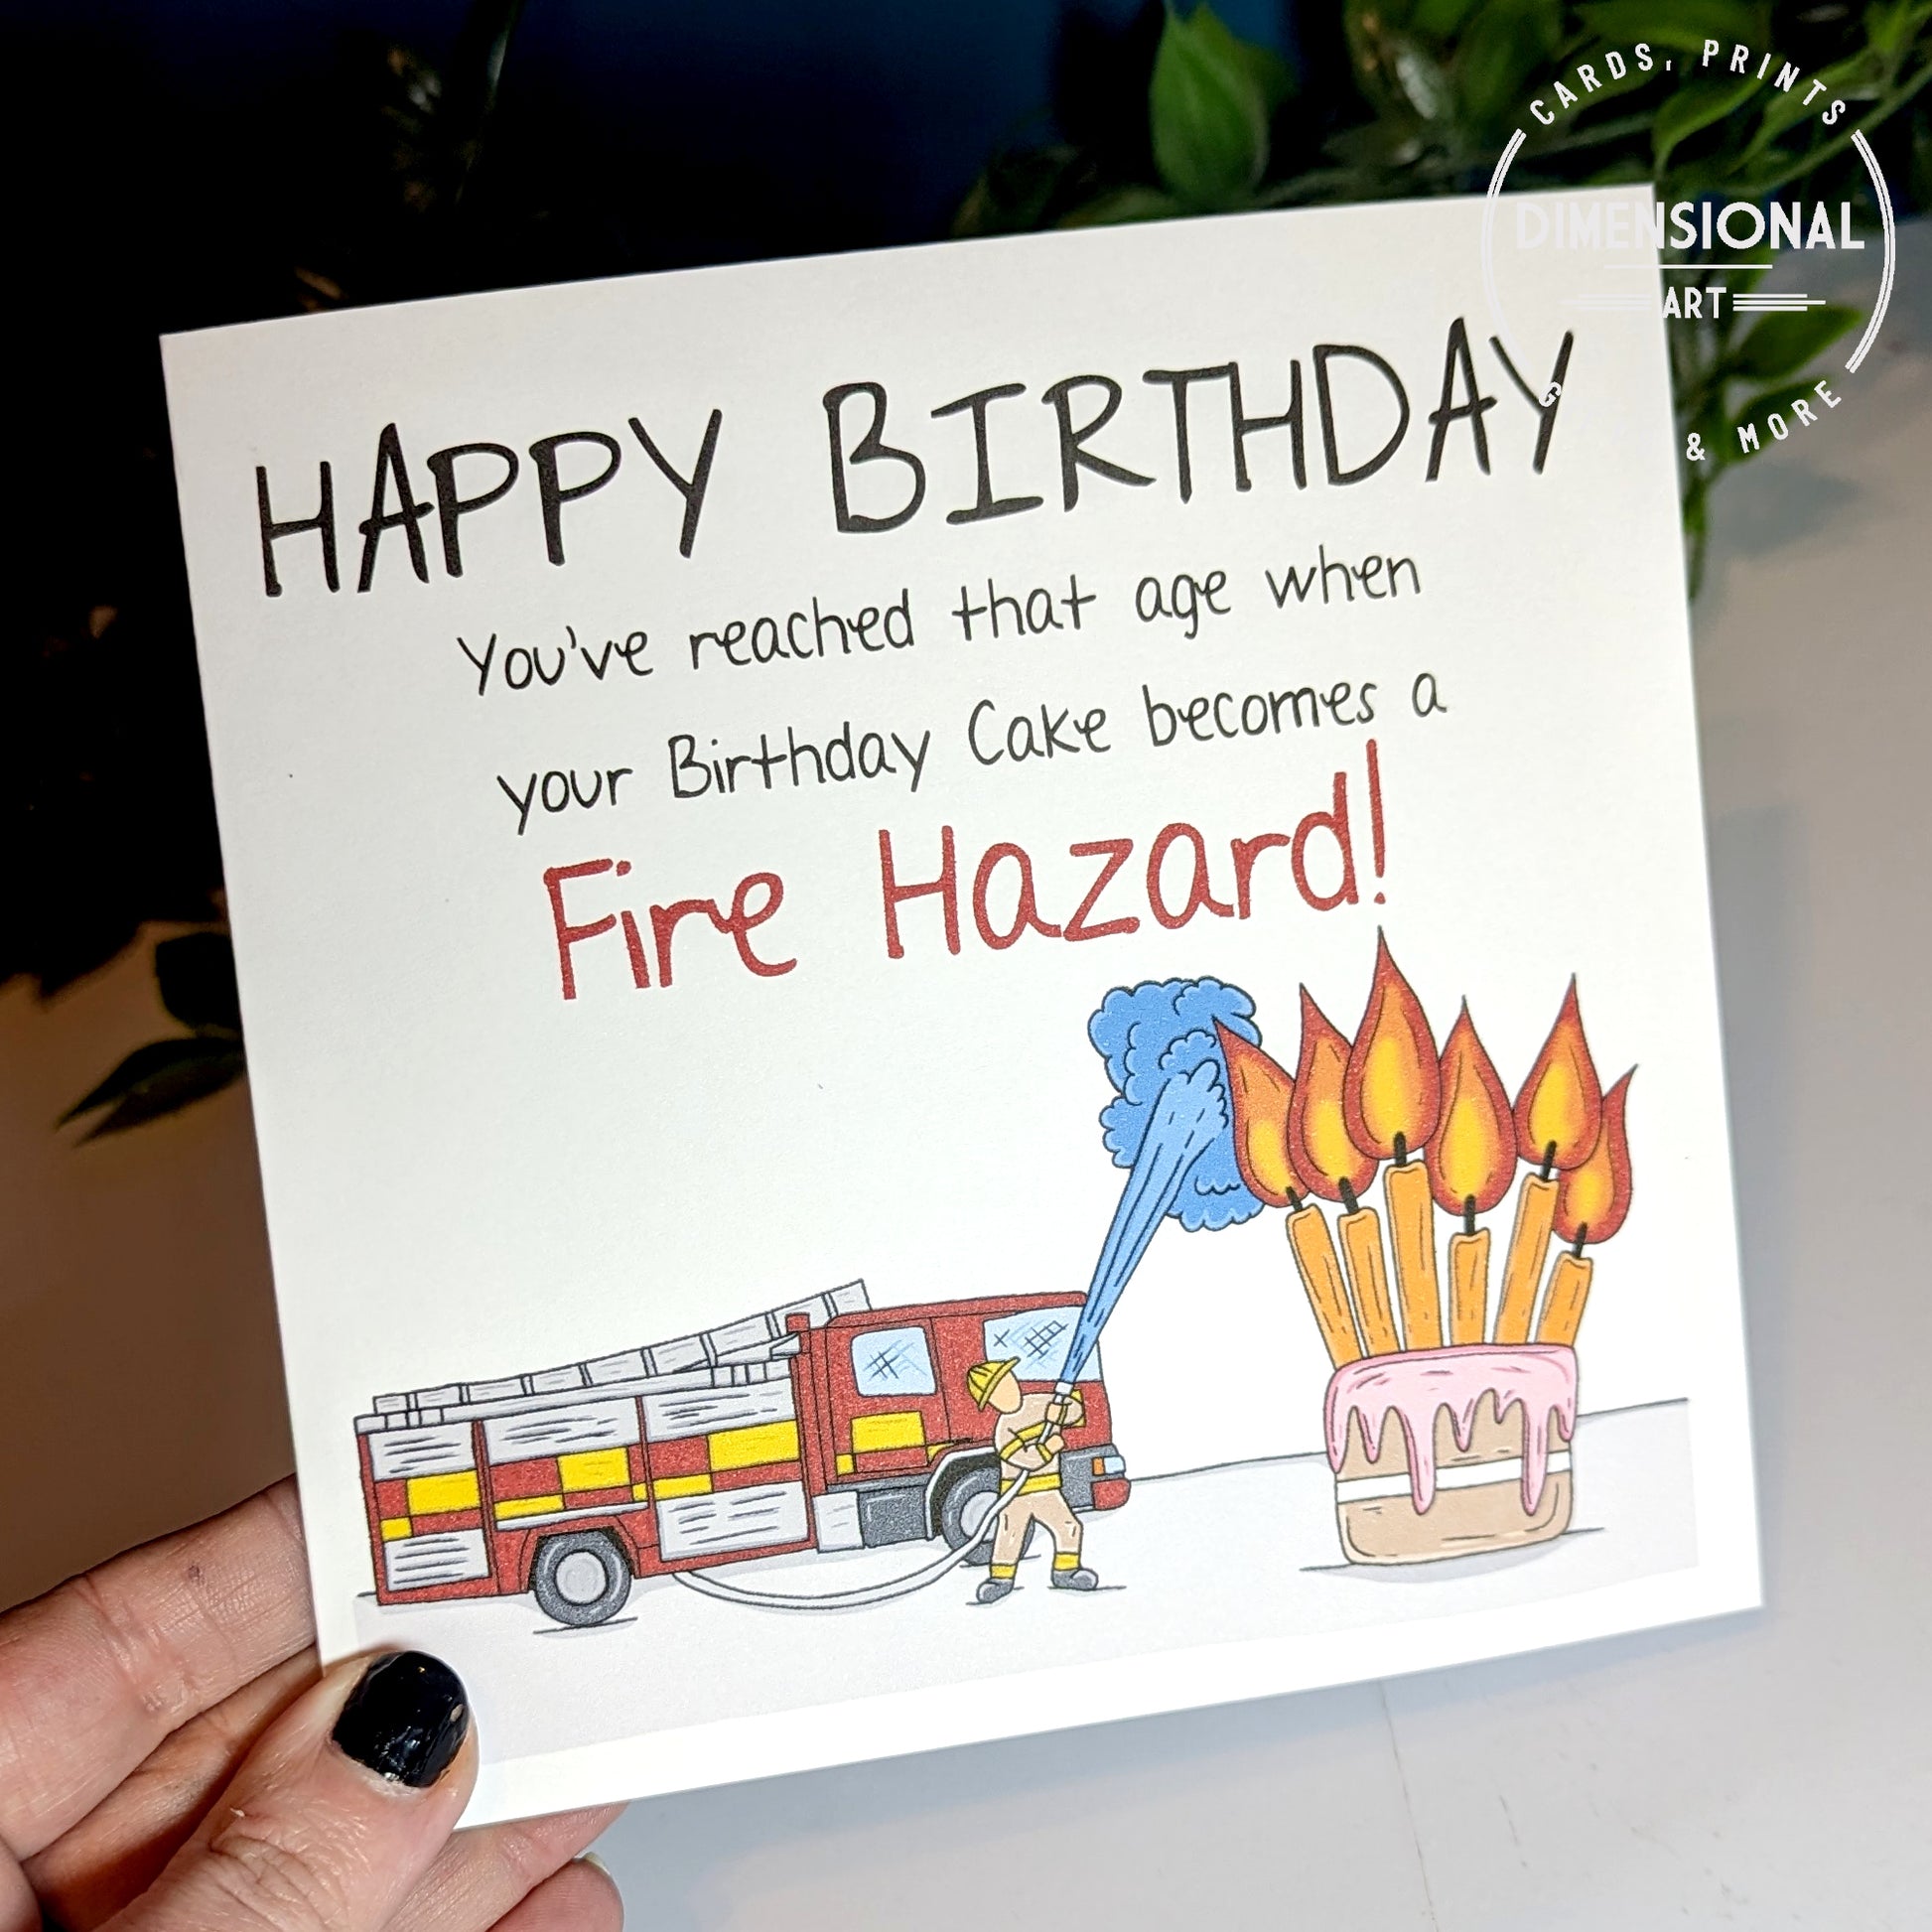 CARDS, PRINTS
DIMENSIONAL
ART
& MORE
HAPPY BIRTHDAY
You've reached that age when
your Birthday Cake becomes a
Fire Hazard!